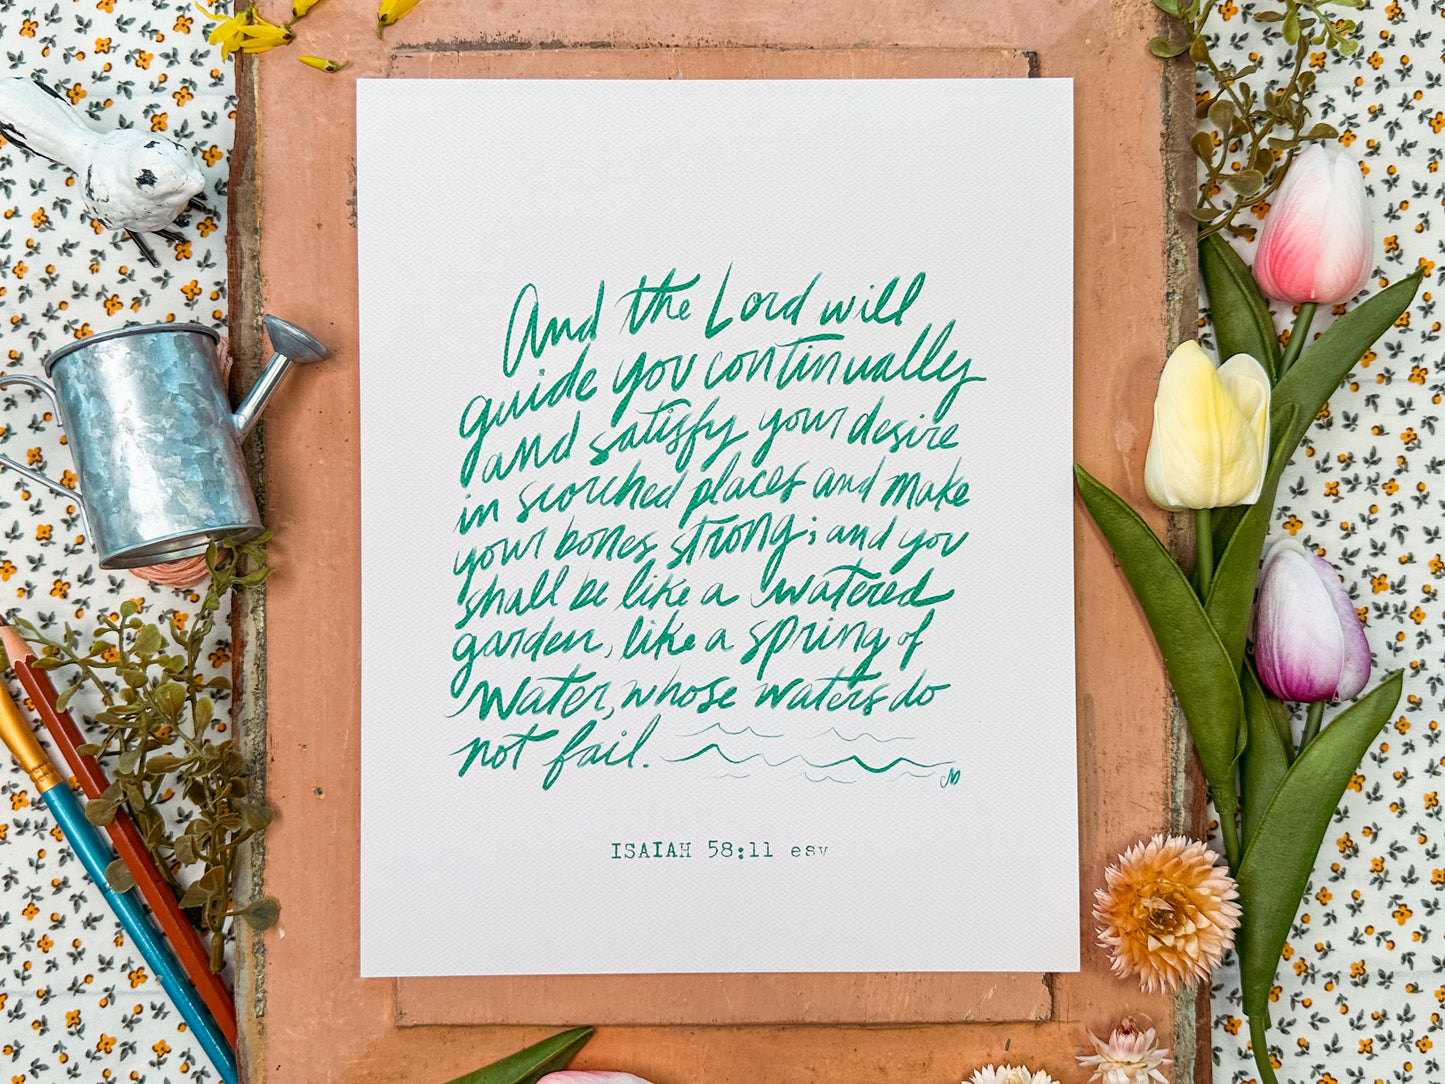 And the Lord will
guide you continually
and satisfy your desire
in scorched places and make
your bones strong; and you
shall be like a watered
garden, like a spring of
Water, whose waters do
not fail.
ISAIAH 58:11 esv